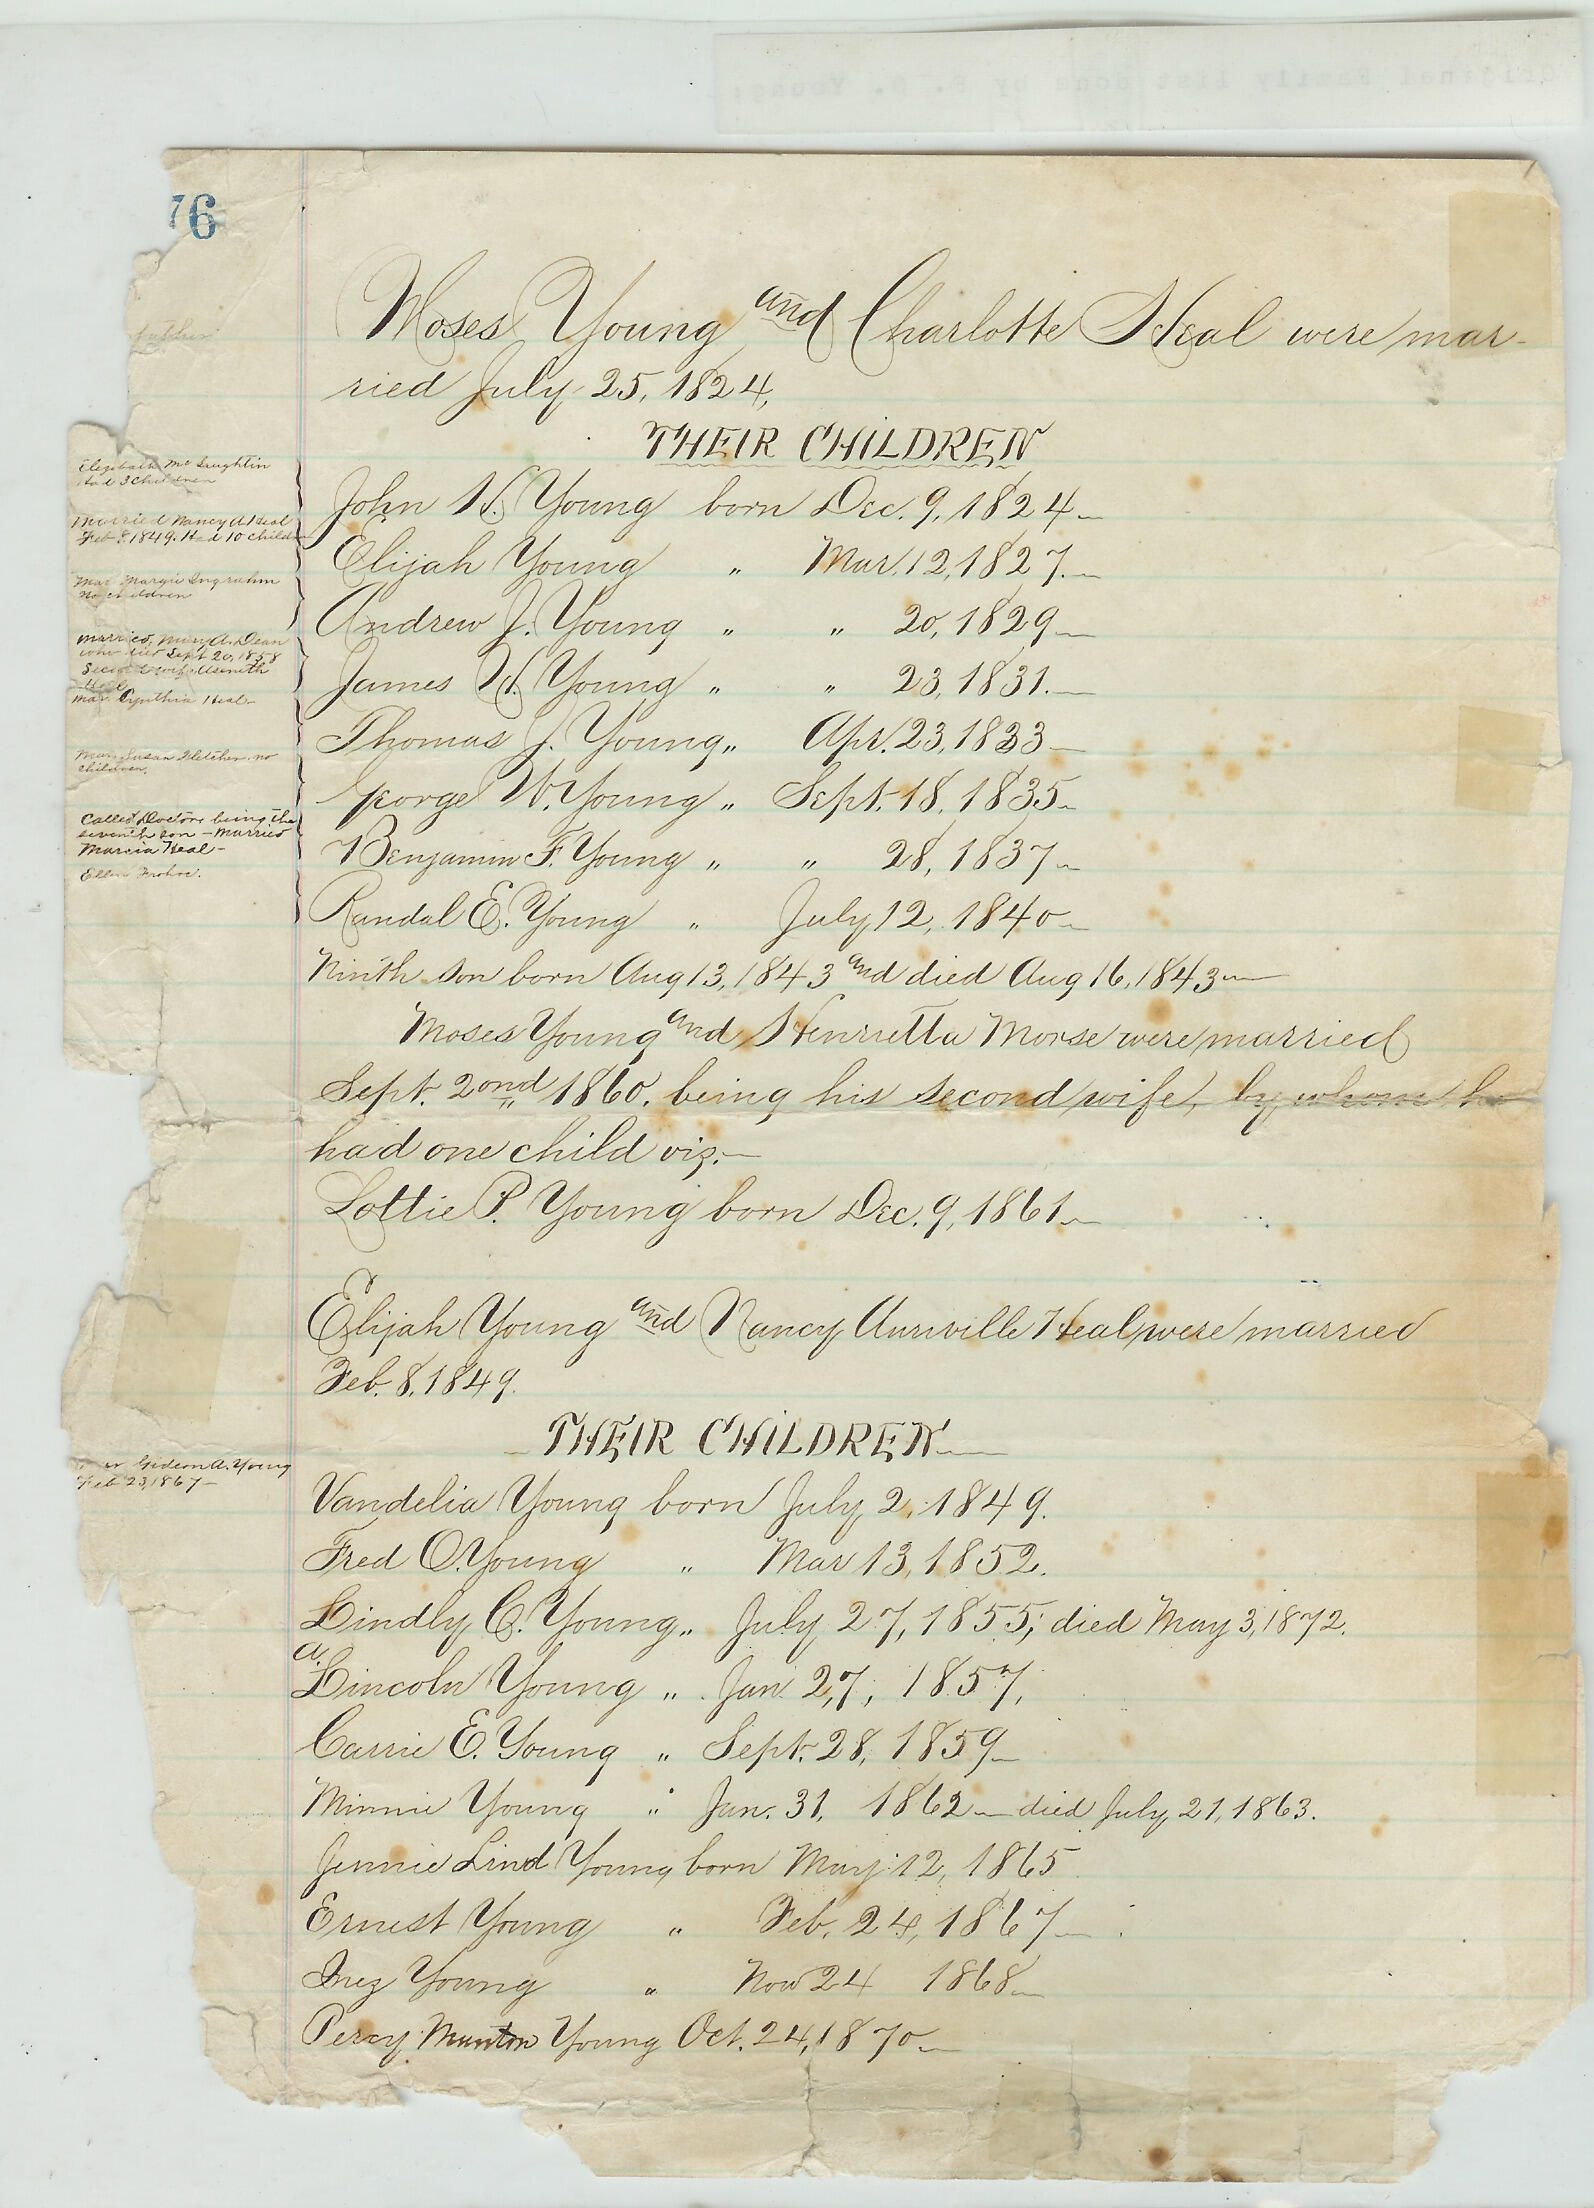 76
father
Moses Young and Charlotte Heal were mar-
ried July 25, 1824,
THEIR CHILDREN
Elizabeth McLaughlin
Had 3 children
John H. Young born Dec. 9, 1824
Married Nancy A. Heal
Feb 8. 1849. Had 10 childr
Elijah Young " Mar. 12, 1827.
Mar Margie Ingrahm
No children
Andrew J. Young " " 20, 1829
married, Mary A. Dean
who died Sept 20, 1858
Second wife Aseneth
Heal
James W. Young " " 23, 1831.
Mar. Cynthia Heal-
Thomas J. Young " Apr. 23, 1833
Mar Susan Fletcher. no
children.
George W. Young " Sept. 18, 1835
Called Doctor, being the
seventh son - Married
Marcia Heal-
Benjamin F. Young " " 28, 1837
Ellen
Randal E. Young " July 12, 1840
Ninth son born Aug 13, 1843 and died Aug 16, 1843
Moses Young and Henrietta Morse were married
Sept. 2nd 1860. being his second wife, by whom he
had one child viz.
Lottie P. Young born Dec. 9, 1861
Elijah Young and Nancy Auriville Heal were married
Feb. 8, 1849.
THEIR CHILDREN
Gideon A. Young
Feb 23, 1867
Vandelia Young born July 2, 1849.
Fred O. Young " Mar 13, 1852.
Lindly C. Young " July 27, 1855; died May 3, 1872.
A.
Lincoln Young " Jan. 27, 1857,
Carrie E. Young " Sept. 28, 1859
Minnie Young " Jan. 31, 1862 died July 21, 1863.
Jennie Lind Young born May 12, 1865
Ernest Young " Feb. 24, 1867
Inez Young " Nov 24 1868
Percy Munton Young Oct. 24, 1870